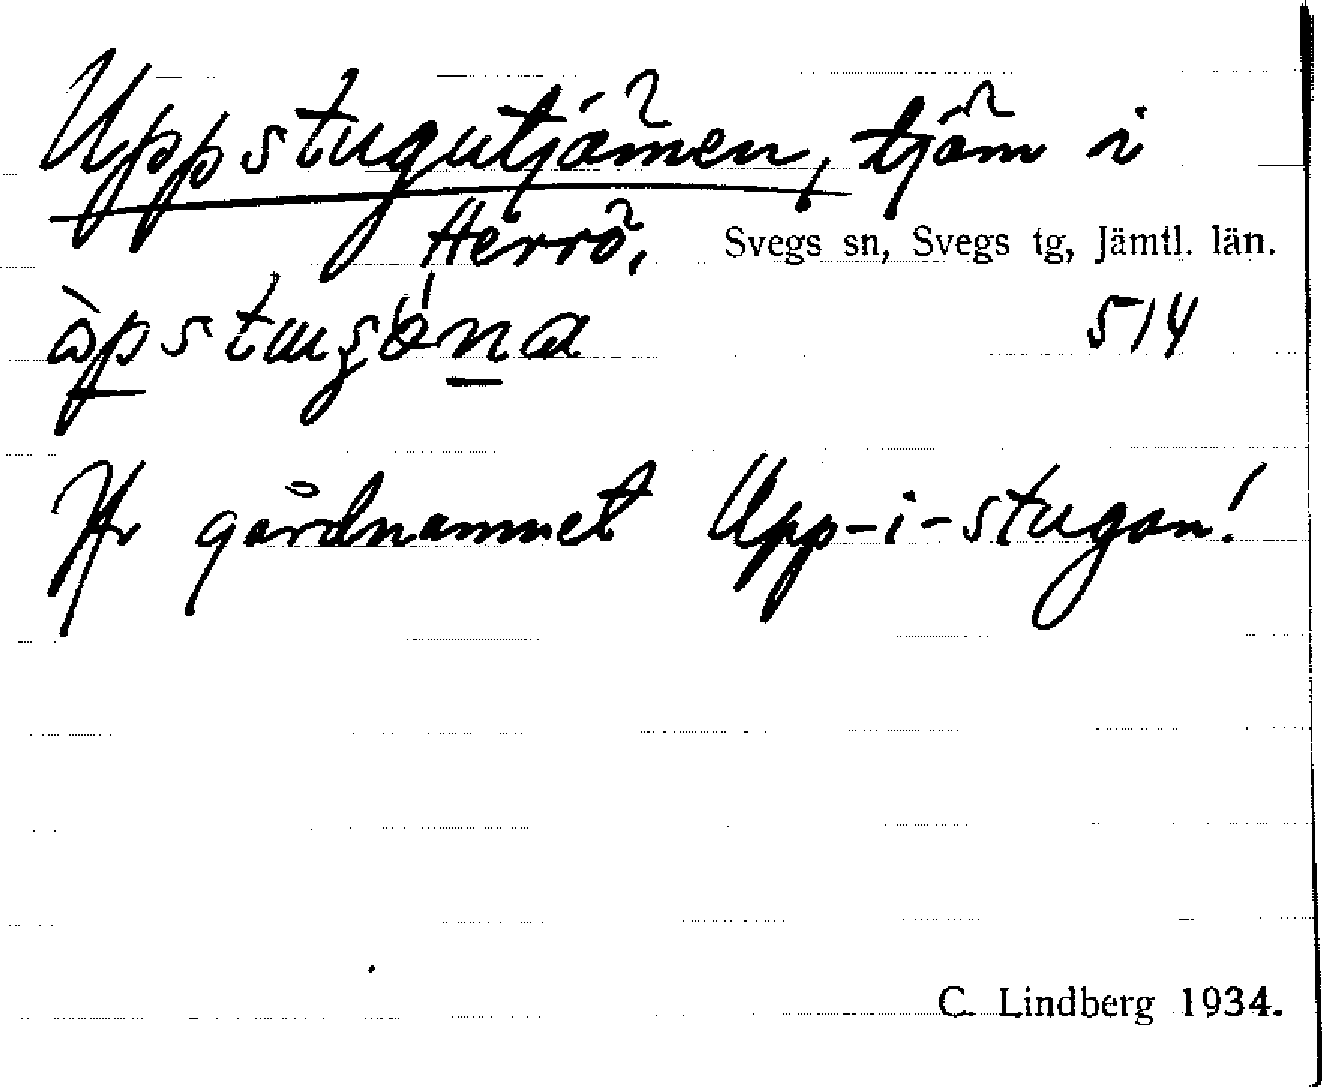 Uppstugutjämen, tjäm i
Herrö, Svegs sn, Svegs tg, Jämtl. län.
514
Jfr gårdnamnet Upp-i-stugan!
C. Lindberg 1934.